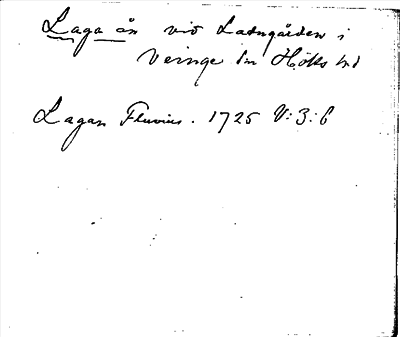 Laga ån vid Laxegården i
Veinge sn Höks hd
Lagan Fluvius. 1725 V:3:6